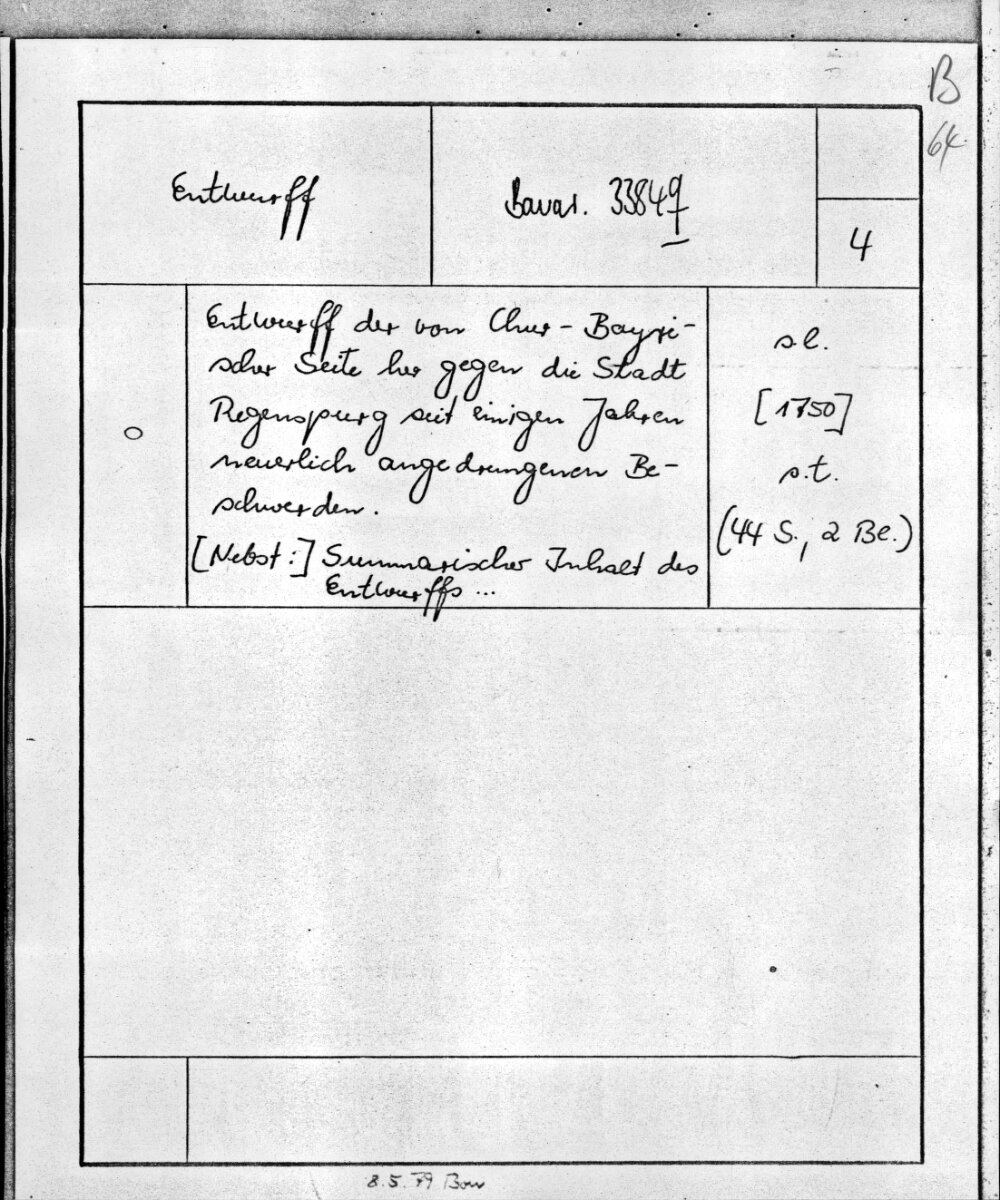 B
64
Entwurff
Bavar. 3384 9
4
Entwurff der von Chur-Bayri-
scher Seite her gegen die Stadt
Regenspurg seit einigen Jahren
neuerlich angedrungenen Be-
schwerden.
[Nebst:] Summarischer Inhalt des
Entwurffs ...
s.l.
[1750]
s.t.
(44 S., 2 Be.)
8.5.79